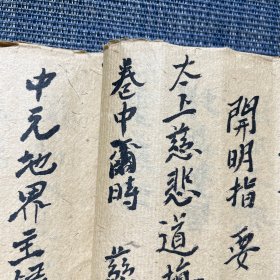 開明指要
太上慈悲道
卷中爾時
中元地界主